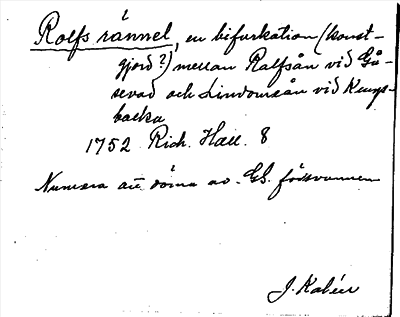 Rolfs rännel, en bifurkation (konst-
gjord?) mellan Rolfsån vid Gå-
sevad och Lindomeån vid Kungs-
backa
1752 Rich. Hall. 8
Numera att döma av G.S. försvunnen
J. Kalén